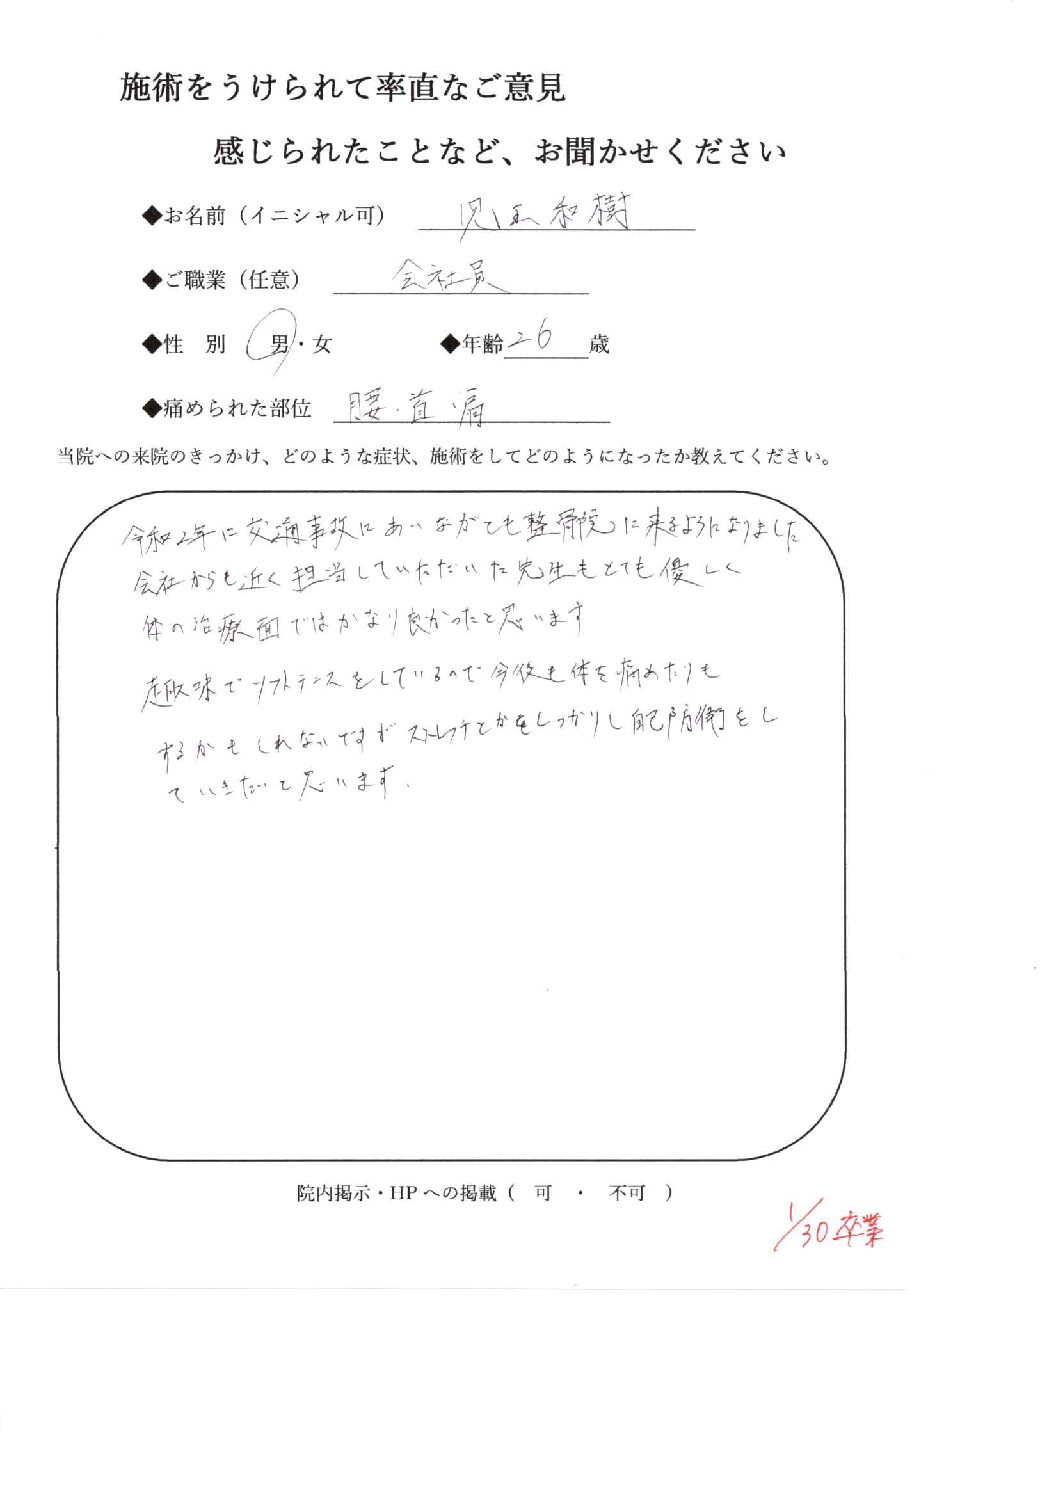 施術をうけられて率直なご意見
感じられたことなど、お聞かせください
◆お名前（イニシャル可） 児玉和樹
◆ご職業（任意） 会社員
◆性 別 男・女 ◆年齢 26 歳
◆痛められた部位 腰・首・肩
当院への来院のきっかけ、どのような症状、施術をしてどのようになったか教えてください。
令和2年に交通事故にあい ながとも整骨院に来るようになりました
会社からも近く担当していただいた先生もとても優しく
体の治療面ではかなり良かったと思います
趣味でソフトテニスをしているので今後も体を痛めたりも
するかもしれないですがストレッチとかをしっかりし自己防衛をし
ていきたいと思います.
院内掲示・HPへの掲載（ 可 ・ 不可 ）
1/30 卒業